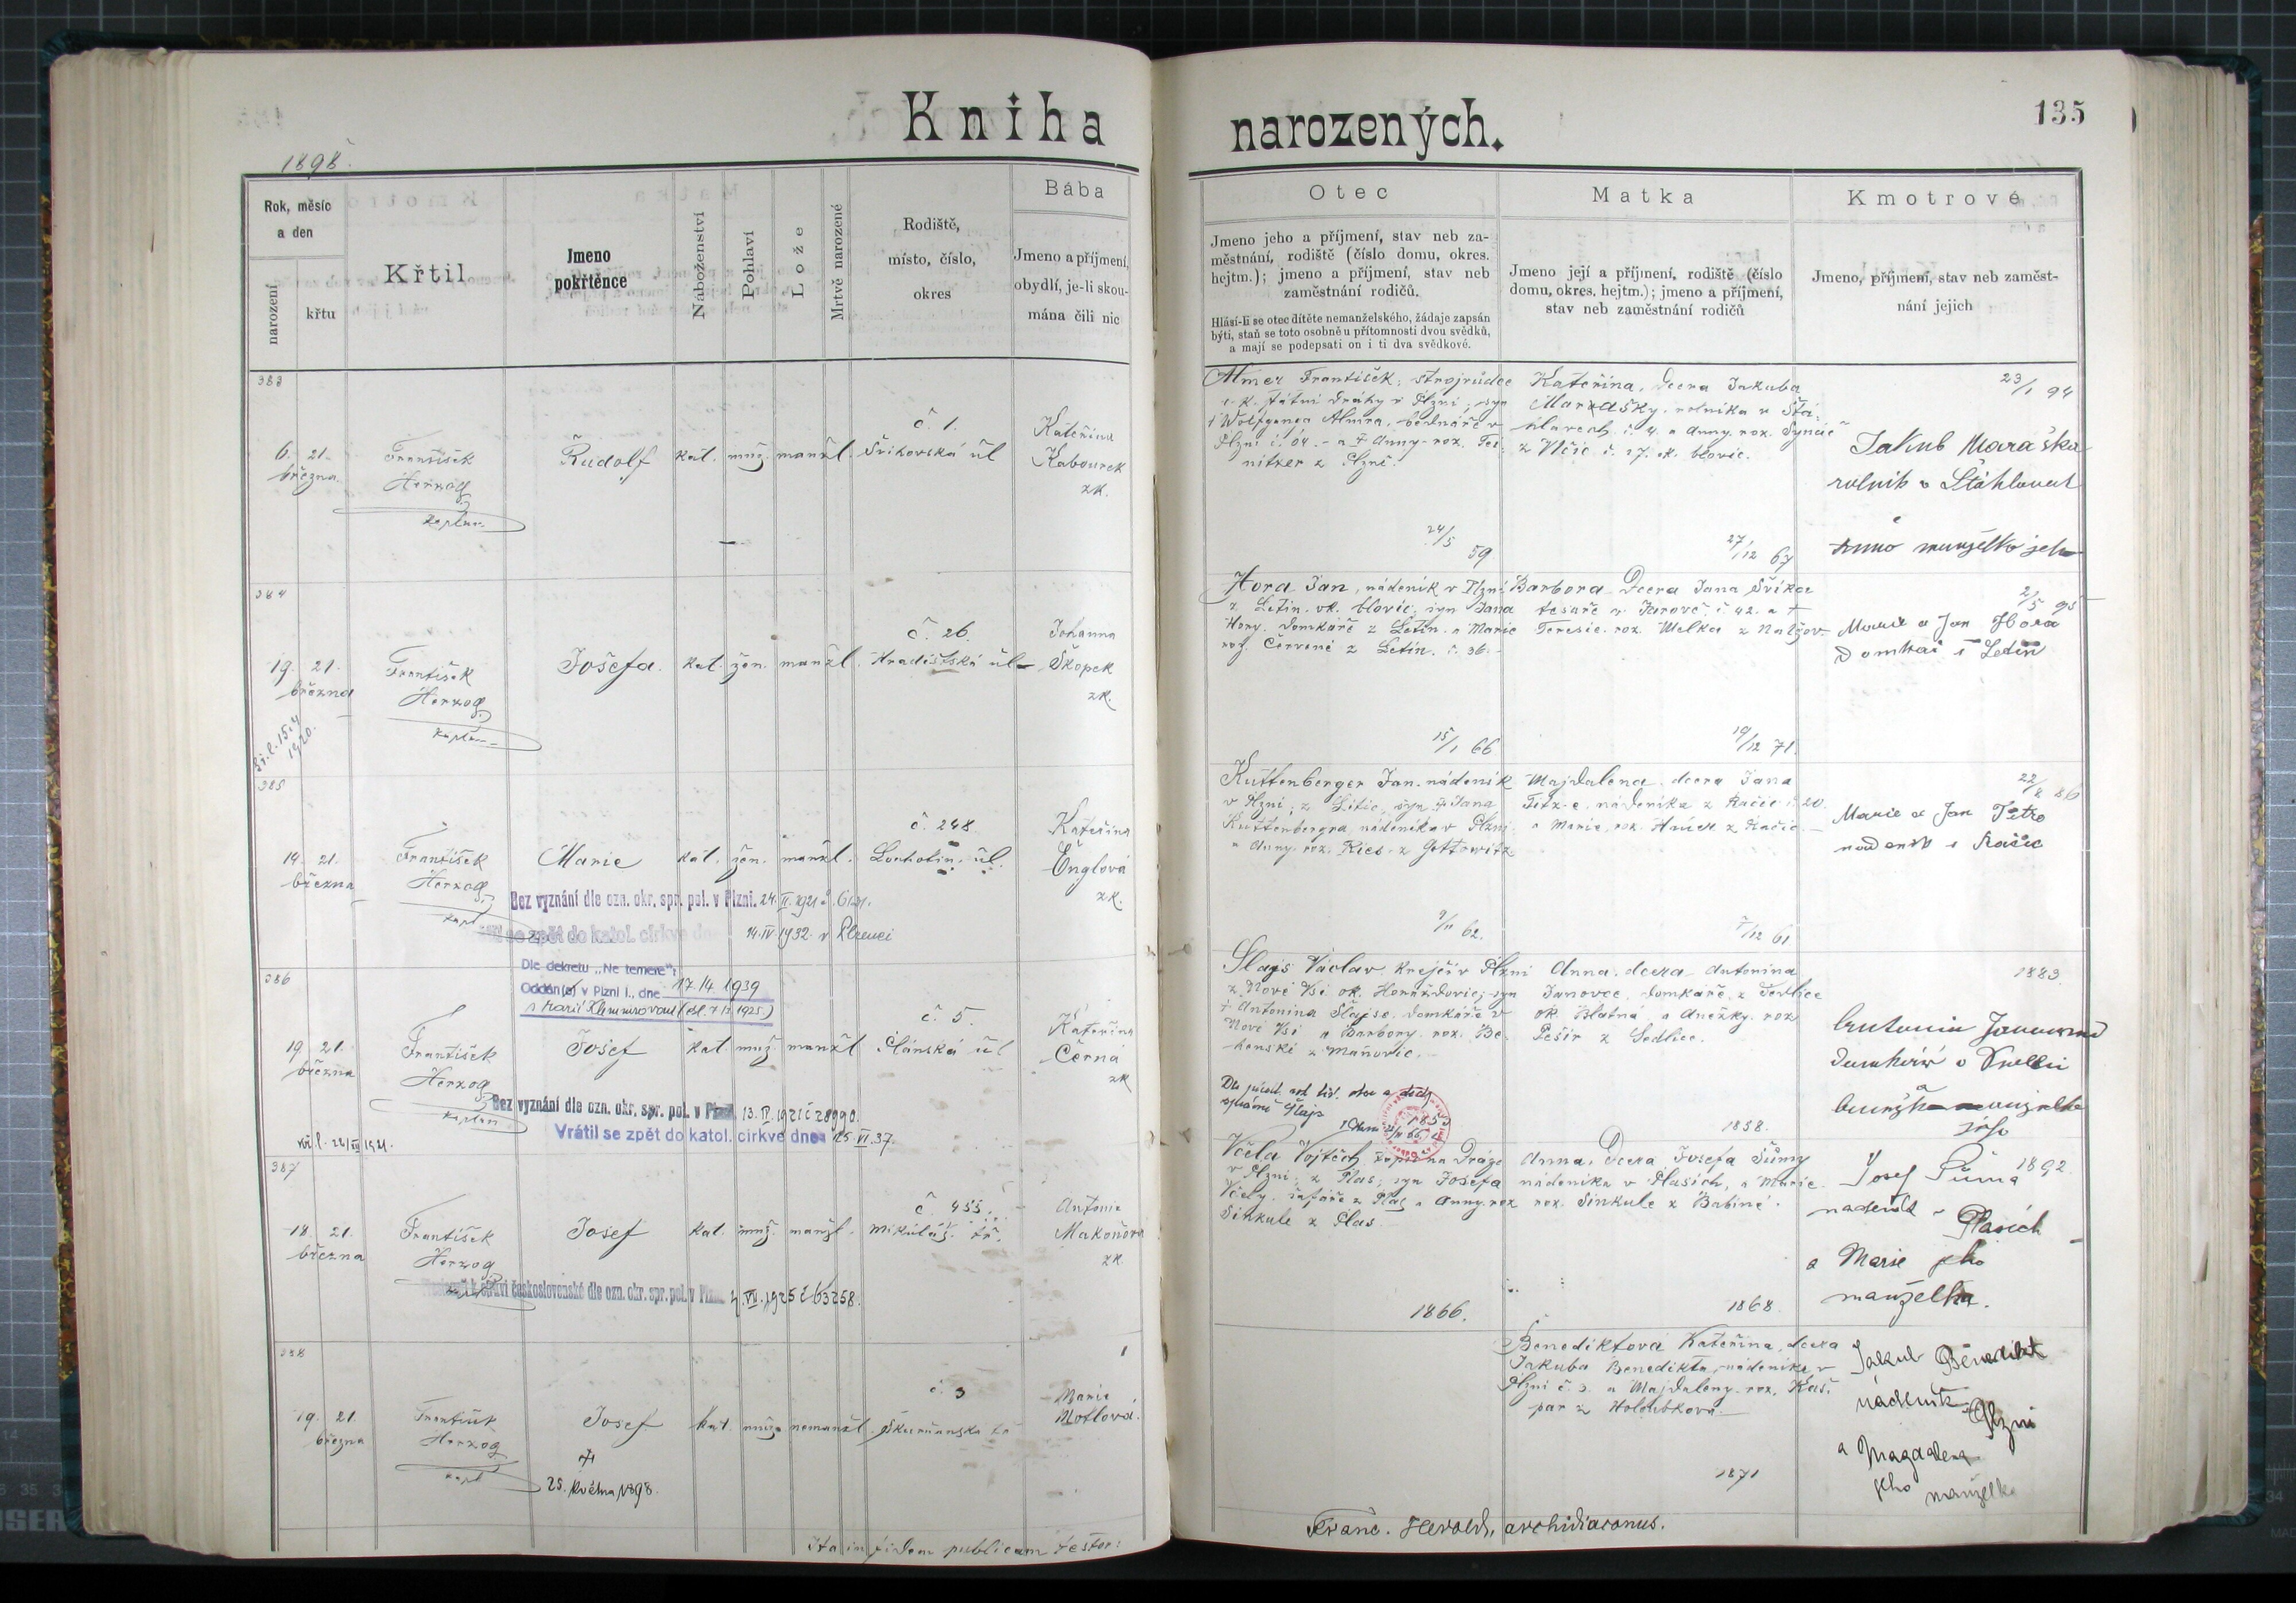 Kniha narozených.
135
1898.
Rok, měsíc
a den
narození
křtu
Křtil
Jmeno
pokřtěnce
Náboženství
Pohlaví
Lože
Mrtvě narozené
Rodiště,
místo, číslo,
okres
Bába
Jmeno a příjmení,
obydlí, je-li skou-
mána čili nic
Otec
Jmeno jeho a příjmení, stav neb za-
městnání, rodiště (číslo domu, okres.
hejtm.); jmeno a příjmení, stav neb
zaměstnání rodičů.
Hlásí-li se otec dítěte nemanželského, žádaje zapsán
býti, staň se toto osobně u přítomnosti dvou svědků,
a mají se podepsati on i ti dva svědkové.
Matka
Jmeno její a příjmení, rodiště (číslo
domu, okres. hejtm.); jmeno a příjmení,
stav neb zaměstnání rodičů
Kmotrové
Jmeno, příjmení, stav neb zaměst-
nání jejich
383
6. 21.
března
František
Herzog
kaplan
Rudolf
kat. muž. manžl.
č. 1.
Kateřina
Kabourek
zk.
Almer František, strojvůdce
c. k. státní dráhy v Plzni, syn
† Wolfganga Almra, bednáře v
Plzni č. 64. a † Anny roz.
nitzer z Plzně.
24/5 59
Kateřina, dcera Jakuba
Marašky, rolníka v
č. 4. a Anny roz.
z Vlčic č. 27. ok. blovic.
27/12 67
23/1 94
Jakub Maraška
rolník v Štáhlavech
a
manželka jeho
384
19. 21.
března
František
Herzog
kaplan
Josefa.
kat. žen. manžl.
č. 26.
Hradištská ul
Johanna
Škopek
zk.
15.4
1920.
Hora Jan, nádeník v Plzni
z Letin ok. blovic, syn Jana
Hory, domkáře z Letin a Marie
roz. Červené z Letin. č. 36.
15/1 66
Barbora dcera Jana
tesaře v č. 42. a †
Teresie roz. Welka z
19/12 71.
2/5 95
Marie a Jan Hora
Domkář z Letin
385
14. 21.
března
František
Herzog
kapl
Marie
kat. žen. manžl.
č. 248
Lochotín. ul.
Kateřina
Englová
zk.
Bez vyznání dle ozn. okr. spr. pol. v Plzni. 24. II. 1921 č.
zpět do katol. církve dne 14. IV. 1932 v
Kuttenberger Jan nádeník
v Plzni, z Litic, syn † Jana
Kuttenbergra, nádeníka v Plzni
a Anny roz. Ries z Gottowitz
9/11 62.
Majdalena dcera Jana
nádeníka z č. 20.
a Marie, roz.
7/12 61
22/2 86
Marie a Jan
Dle dekretu „Ne temere“:
Oddán(a) v Plzni I., dne 17./4. 1939
386
19. 21.
března
František
Herzog
kaplan
Josef
kat. muž. manžl
č. 5.
Plánská ul
Kateřina
Černá
zk
Bez vyznání dle ozn. okr. spr. pol. v Plzni 13. IV. 1921 č 28990.
Vrátil se zpět do katol. církve dne 25. VI. 37.
Slajs Václav krejčí v Plzni
z Nové Vsi ok. Horažďovic, syn
† Antonína Šlajse, domkáře v
Nové Vsi a Barbory roz. Be-
z Maňovic.
správně Šlajs
Anna, dcera Antonína
Janovce, domkáře z Sedlice
ok. Blatná a Anežky roz
Pešír z Sedlice.
1858.
1883.
Antonín
387
18. 21.
března
František
Herzog
Josef
kat. muž. manžl.
č. 455.
Mikuláš. tř.
Antonie
Makoňová
zk
církvi československé dle ozn. okr. spr. pol. v Plzni 4. VII. 1925 č 63258.
Včela Vojtěch, topič na dráze
v Plzni, z Plas, syn Josefa
Včely, šafáře z Plas a Anny roz
Sinkule z Plas
1866.
Anna, dcera Josefa Šůmy
nádeníka v Plasích, a Marie
roz. Sinkule z Babiné.
1868.
1892.
Josef Šůma
nádeník v
Plasích
a Marie jeho
manželka.
388
19. 21.
března
František
Herzog
kapl
Josef
25. května 1898.
kat. muž. nemanžl.
č. 3
Škurňanská tř
Marie
Motlová.
Benediktová Kateřina, dcera
Jakuba Benedikta, nádeníka v
Plzni č. 3. a Majdaleny roz. Kaš-
par z Holoubkova.
1871
Jakub Benedikt
nádeník v
Plzni
a Magdalena
jeho manželka
Ita in fidem publicam testor:
Franc. Herold, archidiaconus.